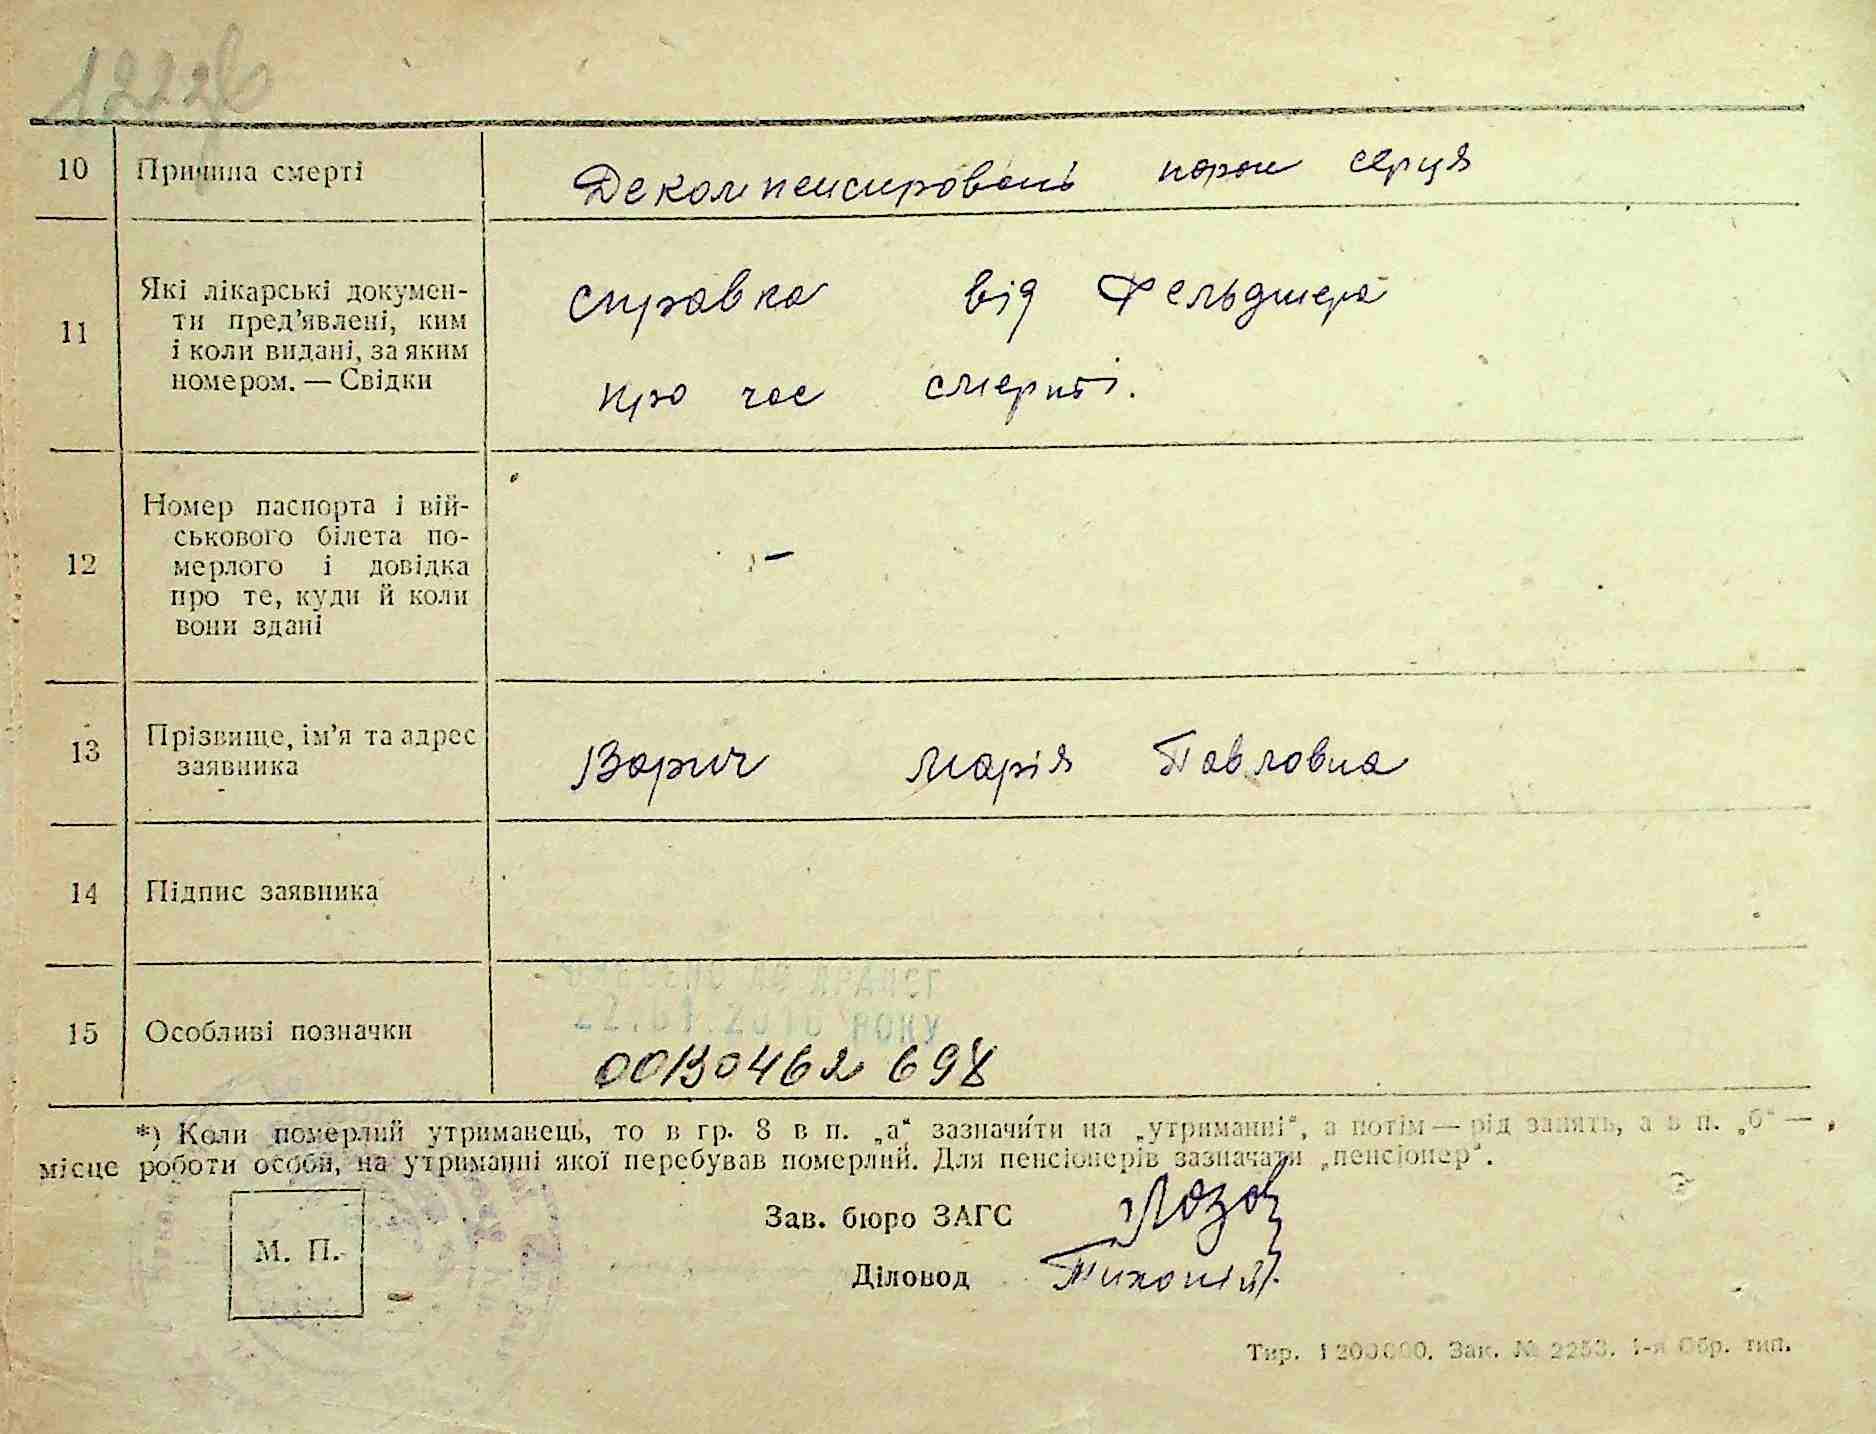 10 Причина смерті Декомпенсировань порок серця
11 Які лікарські докумен-
ти пред’явлені, ким
і коли видані, за яким
номером. — Свідки
справка від Фельдшера
про час смерті.
12 Номер паспорта і вій-
ськового білета по-
мерлого і довідка
про те, куди й коли
вони здані
–
13 Прізвище, ім’я та адрес
заявника
Варич Марія Павловна
14 Підпис заявника
15 Особливі позначки
ВНЕСЕНО ДО ДРАЦСГ
22.01.2010 РОКУ
00130462698
*) Коли померлий утриманець, то в гр. 8 в п. „а“ зазначити на „утриманні“, а потім — рід занять, а в п. „б“ —
місце роботи особи, на утриманні якої перебував померлий. Для пенсіонерів зазначати „пенсіонер“.
М. П.
Зав. бюро ЗАГС
Діловод
Тир. 1 200000. Зак. № 2253. 1-я Обр. тип.